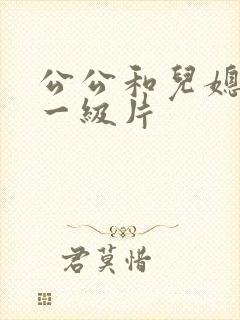 公公和兒媳
一級片
君莫惜